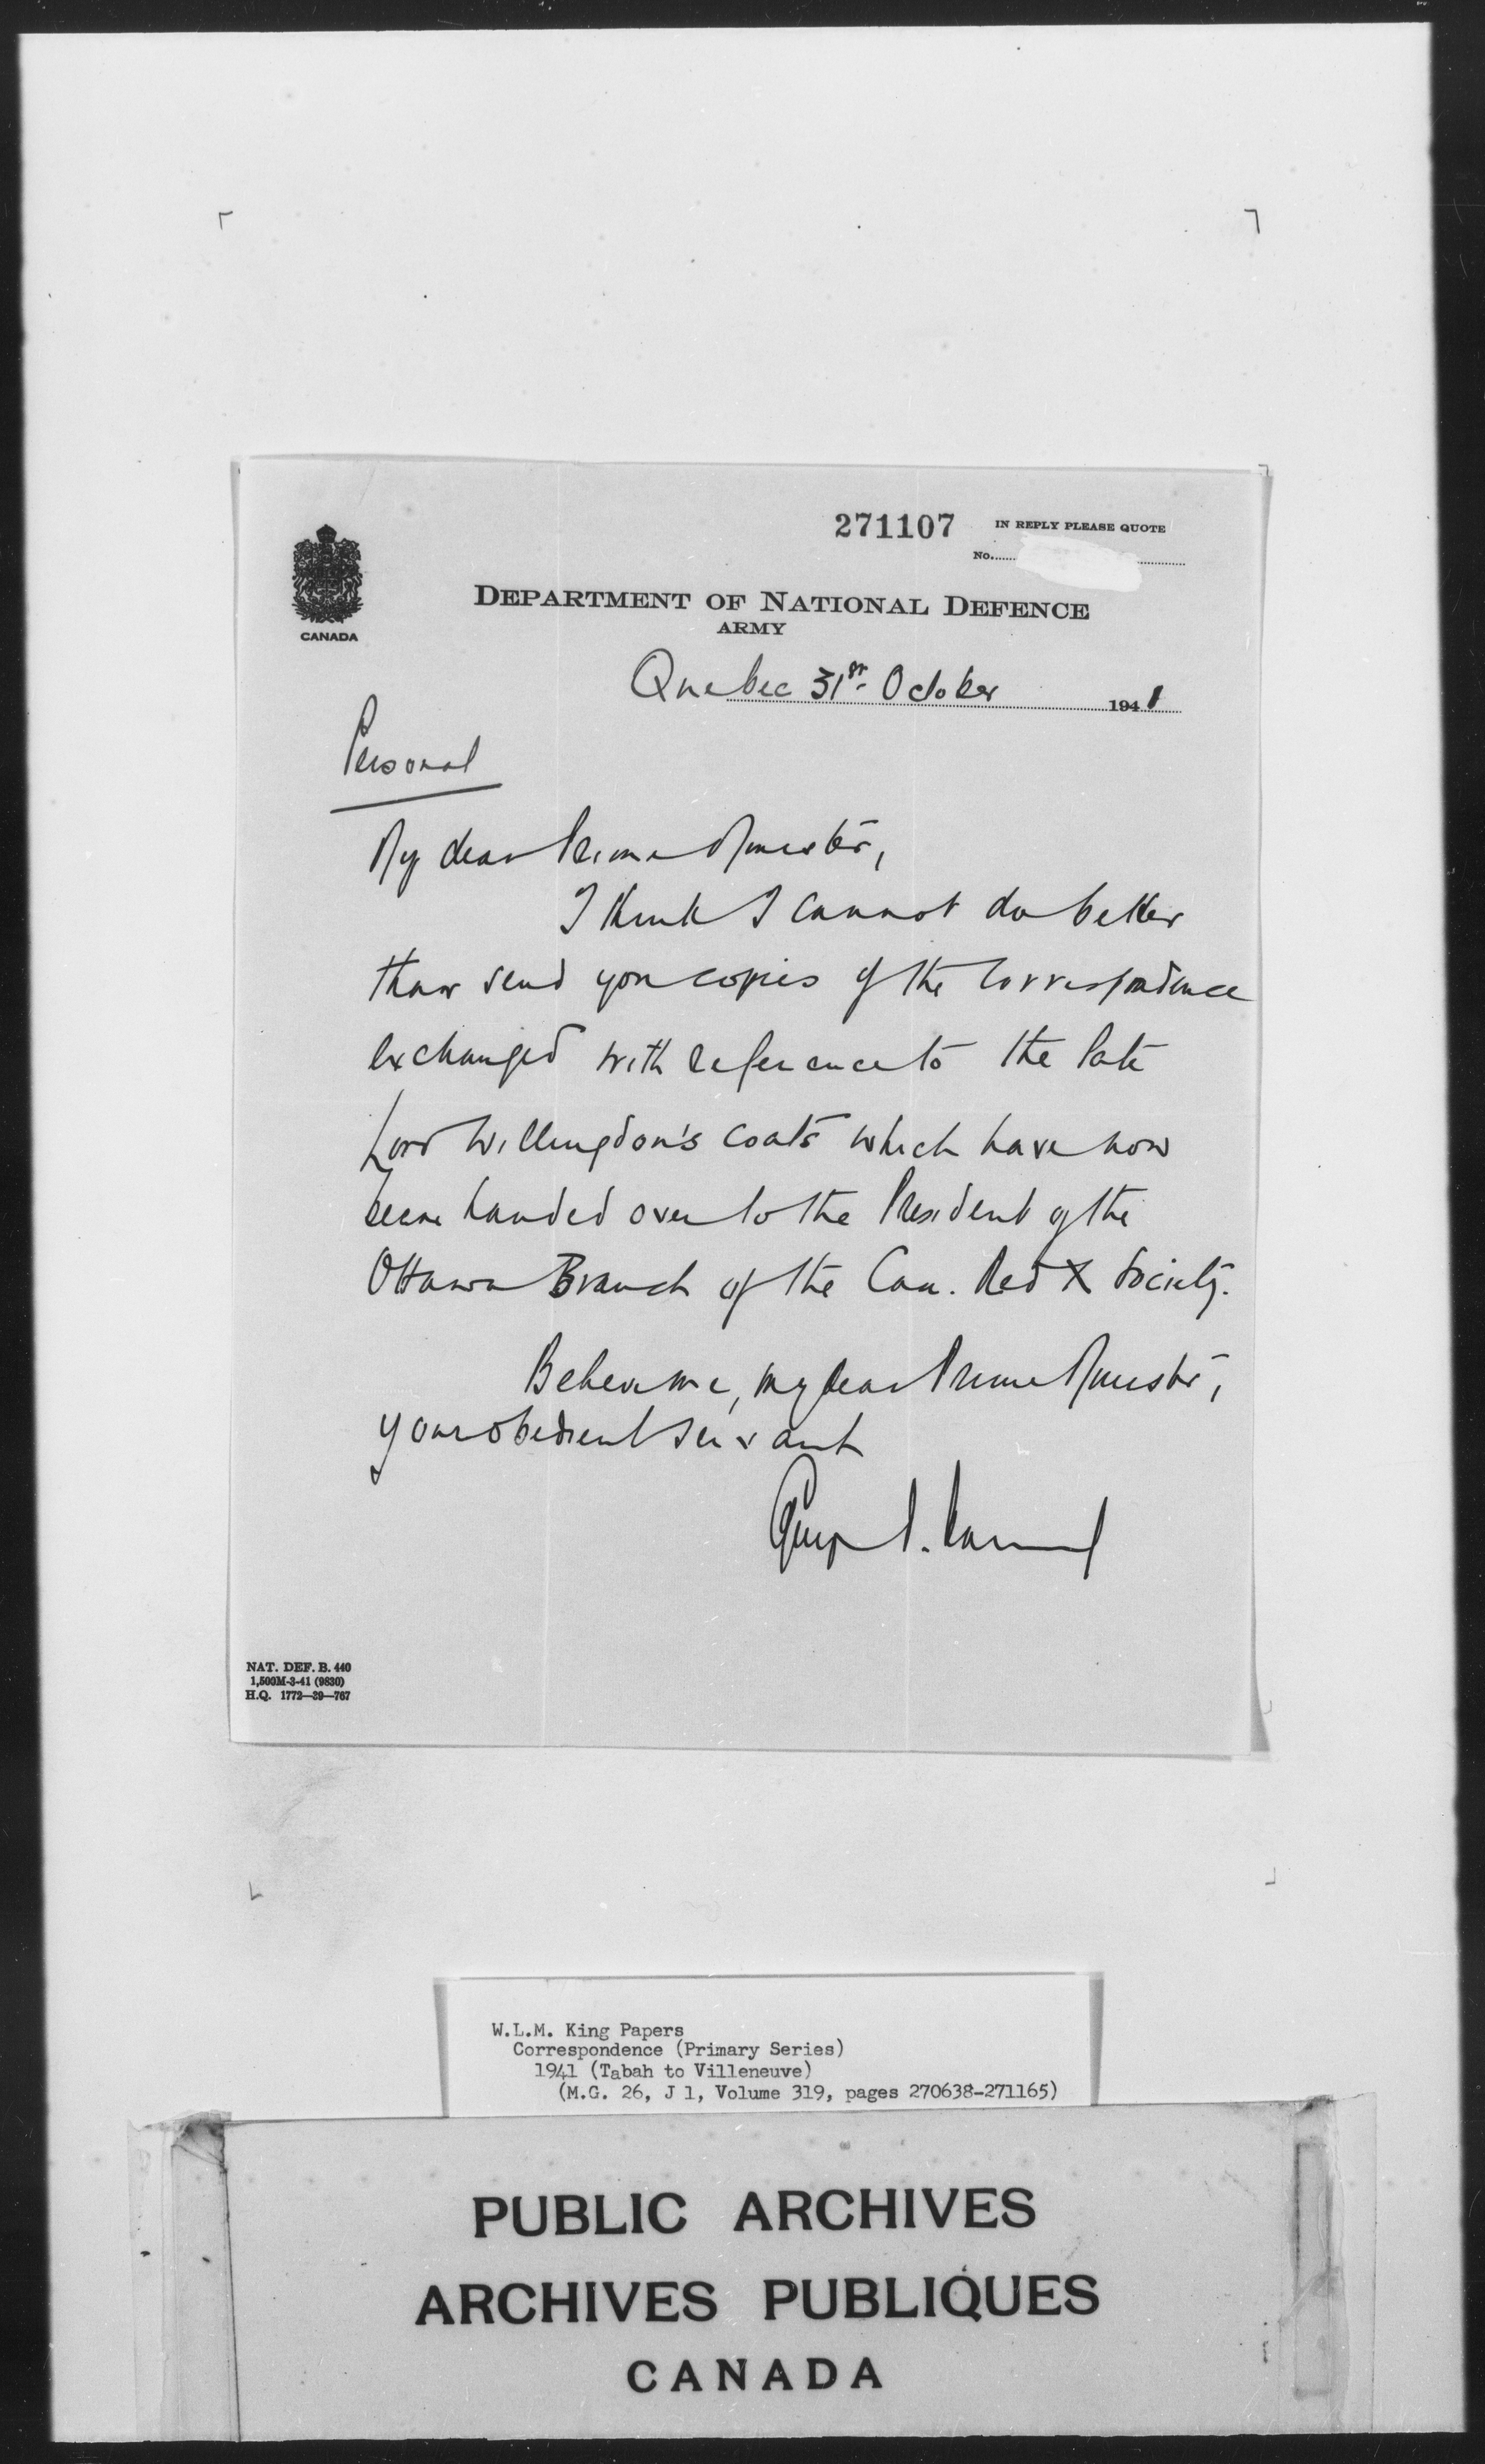 271107 IN REPLY PLEASE QUOTE
No.
CANADA
DEPARTMENT OF NATIONAL DEFENCE
ARMY
Quebec 31st October 1941
Personal
My dear Prime Minister,
I think I cannot do better
than send you copies of the correspondence
exchanged with reference to the late
Lord Willingdon's coats which have now
been handed over to the President of the
Ottawa Branch of the Can. Red X Society.
Believe me, my dear Prime Minister,
your obedient servant
NAT. DEF. B. 440
1,500M-3-41 (9830)
H.Q. 1772-39-767
W.L.M. King Papers
Correspondence (Primary Series)
1941 (Tabah to Villeneuve)
(M.G. 26, J 1, Volume 319, pages 270638-271165)
PUBLIC ARCHIVES
ARCHIVES PUBLIQUES
CANADA